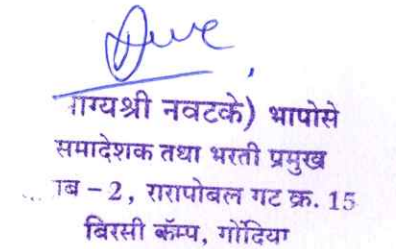 ाग्यश्री नवटके) भापोसे
समादेशक तथा भरती प्रमुख
ाब – 2, रारापोबल गट क्र. 15
बिरसी कॅम्प, गोंदिया